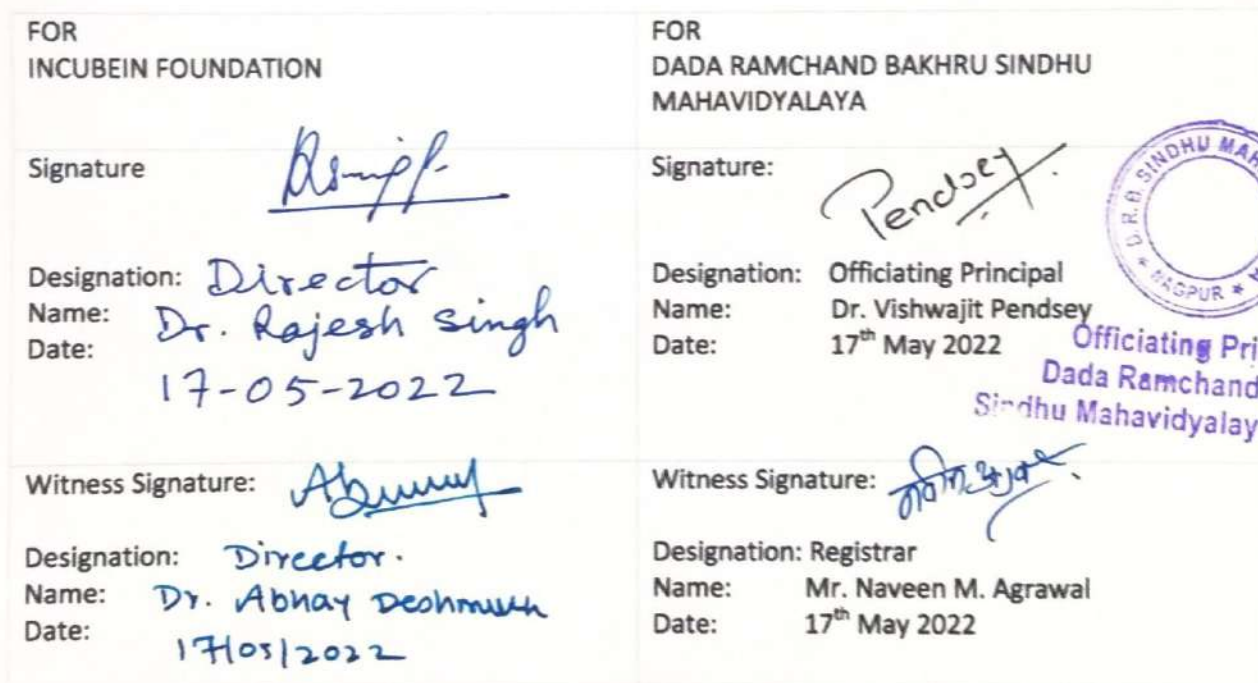 FOR
INCUBEIN FOUNDATION
Signature
Designation: Director
Name: Dr. Rajesh Singh
Date:
17-05-2022
Witness Signature:
Designation: Director.
Name: Dr. Abhay Deshmukh
Date:
17/05/2022
FOR
DADA RAMCHAND BAKHRU SINDHU
MAHAVIDYALAYA
Signature: Pendsey
Designation: Officiating Principal
Name: Dr. Vishwajit Pendsey
Date: 17th May 2022
D.R.B. SINDHU MAH
* NAGPUR *
Officiating Pri
Dada Ramchand
Sindhu Mahavidyalay
Witness Signature:
Designation: Registrar
Name: Mr. Naveen M. Agrawal
Date: 17th May 2022